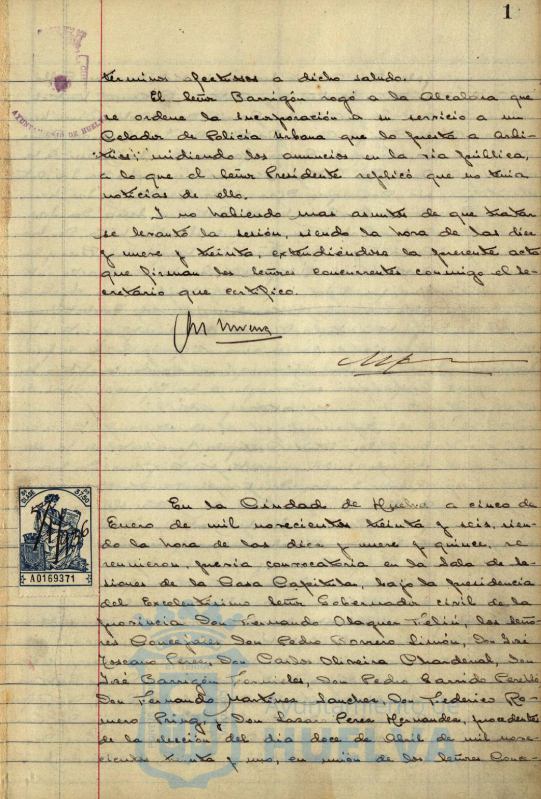 1
AYUNTAMIENTO DE HUELVA
términos afectuosos a dicho saludo.
El Señor Barrigón rogó a la Alcaldía que
se ordene la incorporación a su servicio a un
Celador de Policía Urbana que lo presta a Arbi-
trios, midiendo los anuncios en la vía pública,
a lo que el Señor Presidente replicó que no tenia
noticias de ello.
Y no habiendo mas asuntos de que tratar
se levantó la sesión, siendo la hora de las diez
y nueve y treinta, extendiéndose la presente acta
que firman los señores concurrentes conmigo el Se-
cretario que certifico.
En la Ciudad de Huelva a cinco de
Enero de mil novecientos treinta y seis, sien-
do la hora de las diez y nueve y quince, se
reunieron, previa convocatoria en la Sala de Se-
siones de la Casa Capitular, bajo la presidencia
del Excelentísimo Señor Gobernador civil de la
provincia Don Fernando Olaguer Feliú, los Seño-
res Concejales Don Pedro Borrero Limón, Don José
Toscano Perez, Don Carlos Oliveira Chardenal, Don
José Barrigón Fornieles, Don Pedro Garrido Perelló
Don Fernando Martinez Sanchez, Don Federico Ro-
mero y Don Lazaro Perez Hernandez, procedentes
de la elección del dia doce de Abril de mil nove-
cientos treinta y uno, en unión de los señores Conce-
CLASE 8ª
A0169371
HUELVA